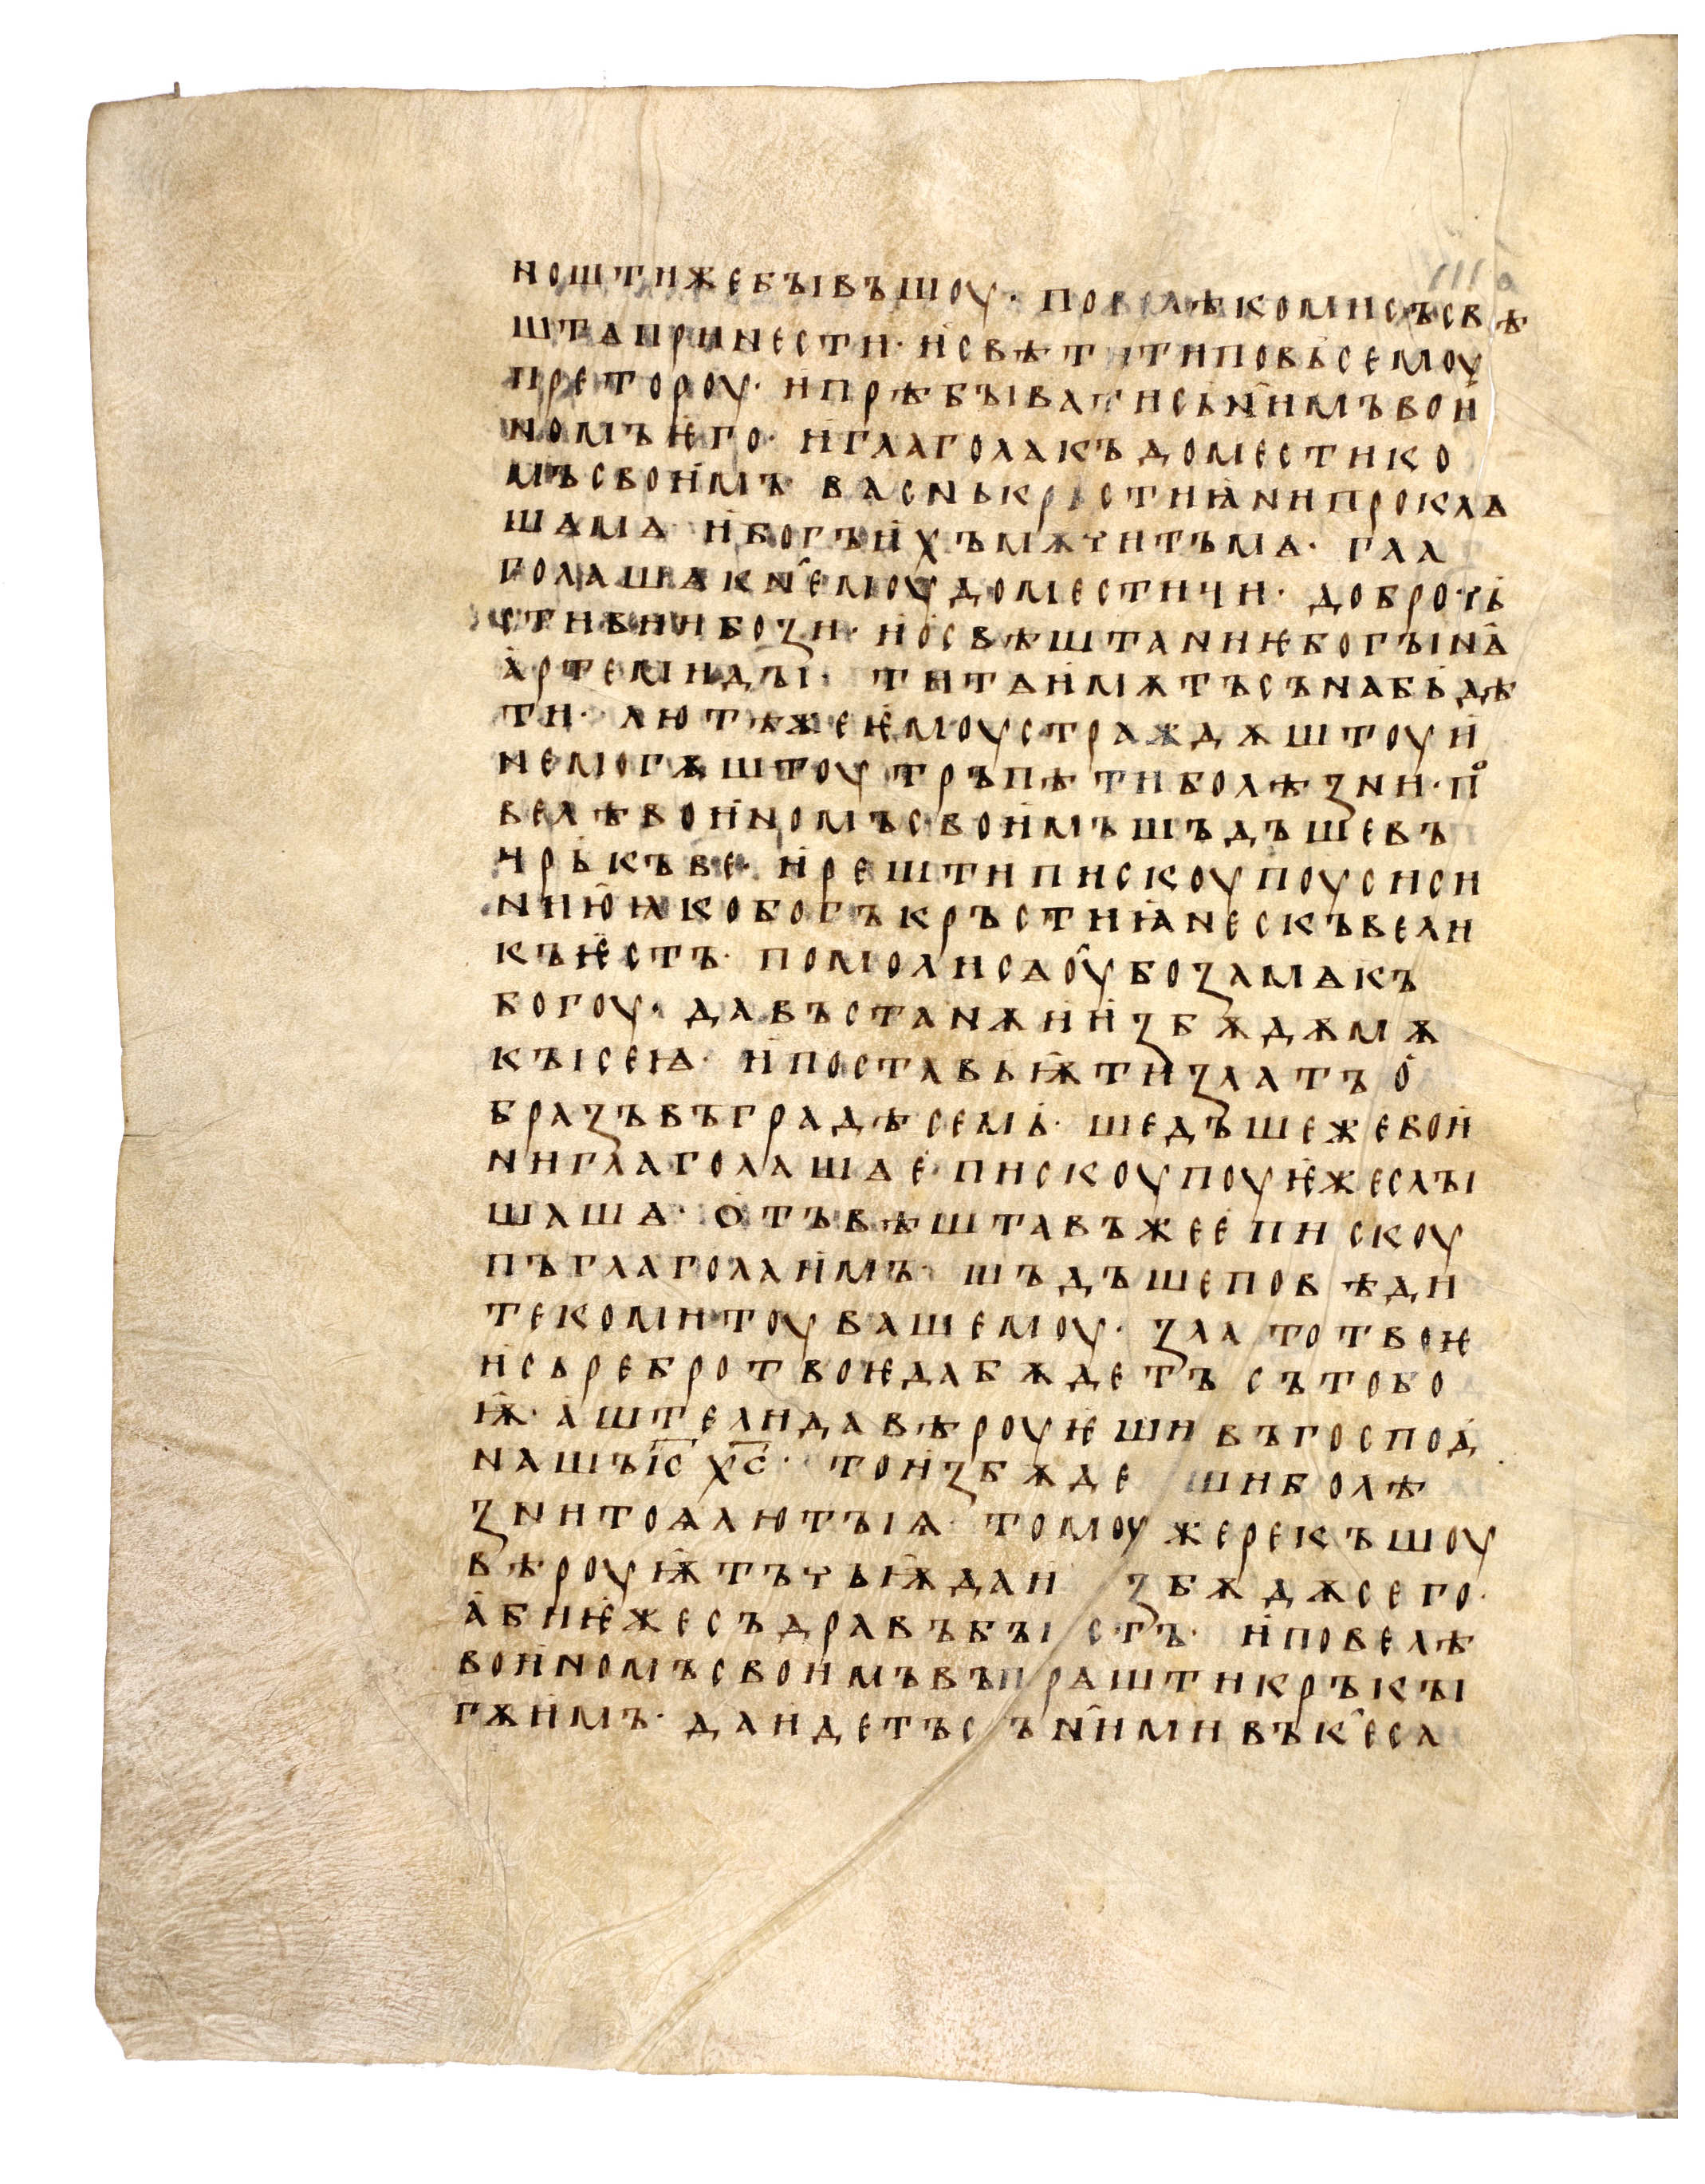 ноштижебꙑвъшоу· повелѣкомисъсвѣ
штѧпринести· и҅свѣтитиповьсемоу
претороу· и҅прѣбꙑватисьн҄имъвои҅
номъѥго· и҅глаголакъдоместико
мъсвои҅мъ васнькрьстиꙗнипрокла
шѧмѧ и҅богъи҅хъмѫчитъмѧ· гла
голашѧкн҄емоудоместичи· доброчь
стивиибоꙁи· и҅о҅свѣштаниѥбогꙑнѧ҄
а҅ртемидꙑ· титѧи҅мѫтъсънабьдѣ
ти· лютѣжеѥ҅моустраждѫштоуи҅
немогѫштоутръпѣтиболѣꙁни· по
велѣвои҅номъсвои҅мъшъдъшевъ
чрькъве· и҅рештиписскоупоусиси
ниюꙗкобогъкръстиꙗнескъвели
къѥстъ· помолисѧоубоꙁамѧкъ
богоу· давъстанѫии҅ꙁбѫдѫмѫ
кꙑсеѩ· и҅поставьѭтиꙁлатъо҅
браꙁъвъградѣсемь· шедъшежевои҅
ниглаголашѧе҅пискоупоуѥ҅жеслꙑ
шашѧ· о҅тъвѣштавъжеепискоу
пъглаголаи҅мъ· шъдъшеповѣди
текомитоувашемоу· ꙁлатотвоѥ
и҅сьребротвоѥдабѫдетъсътобо
ѭ· а҅штелидавѣроуѥ҅шивъгоспод҅
нашъі҃с х҃с· тои҅ꙁбѫдешиболѣ
ꙁнитоѧлютꙑѧ· томоужерекъшоу
вѣроуѭтъчьѭдаи ꙁбѫдѫсего·
а҅биѥ҅жесъдравъбꙑстъ· и҅повелѣ
вои҅номъсвои҅мъвъпрѧштикрѫкꙑ
гѫи҅мъ· даи҅детъсън҄имивък҄еса